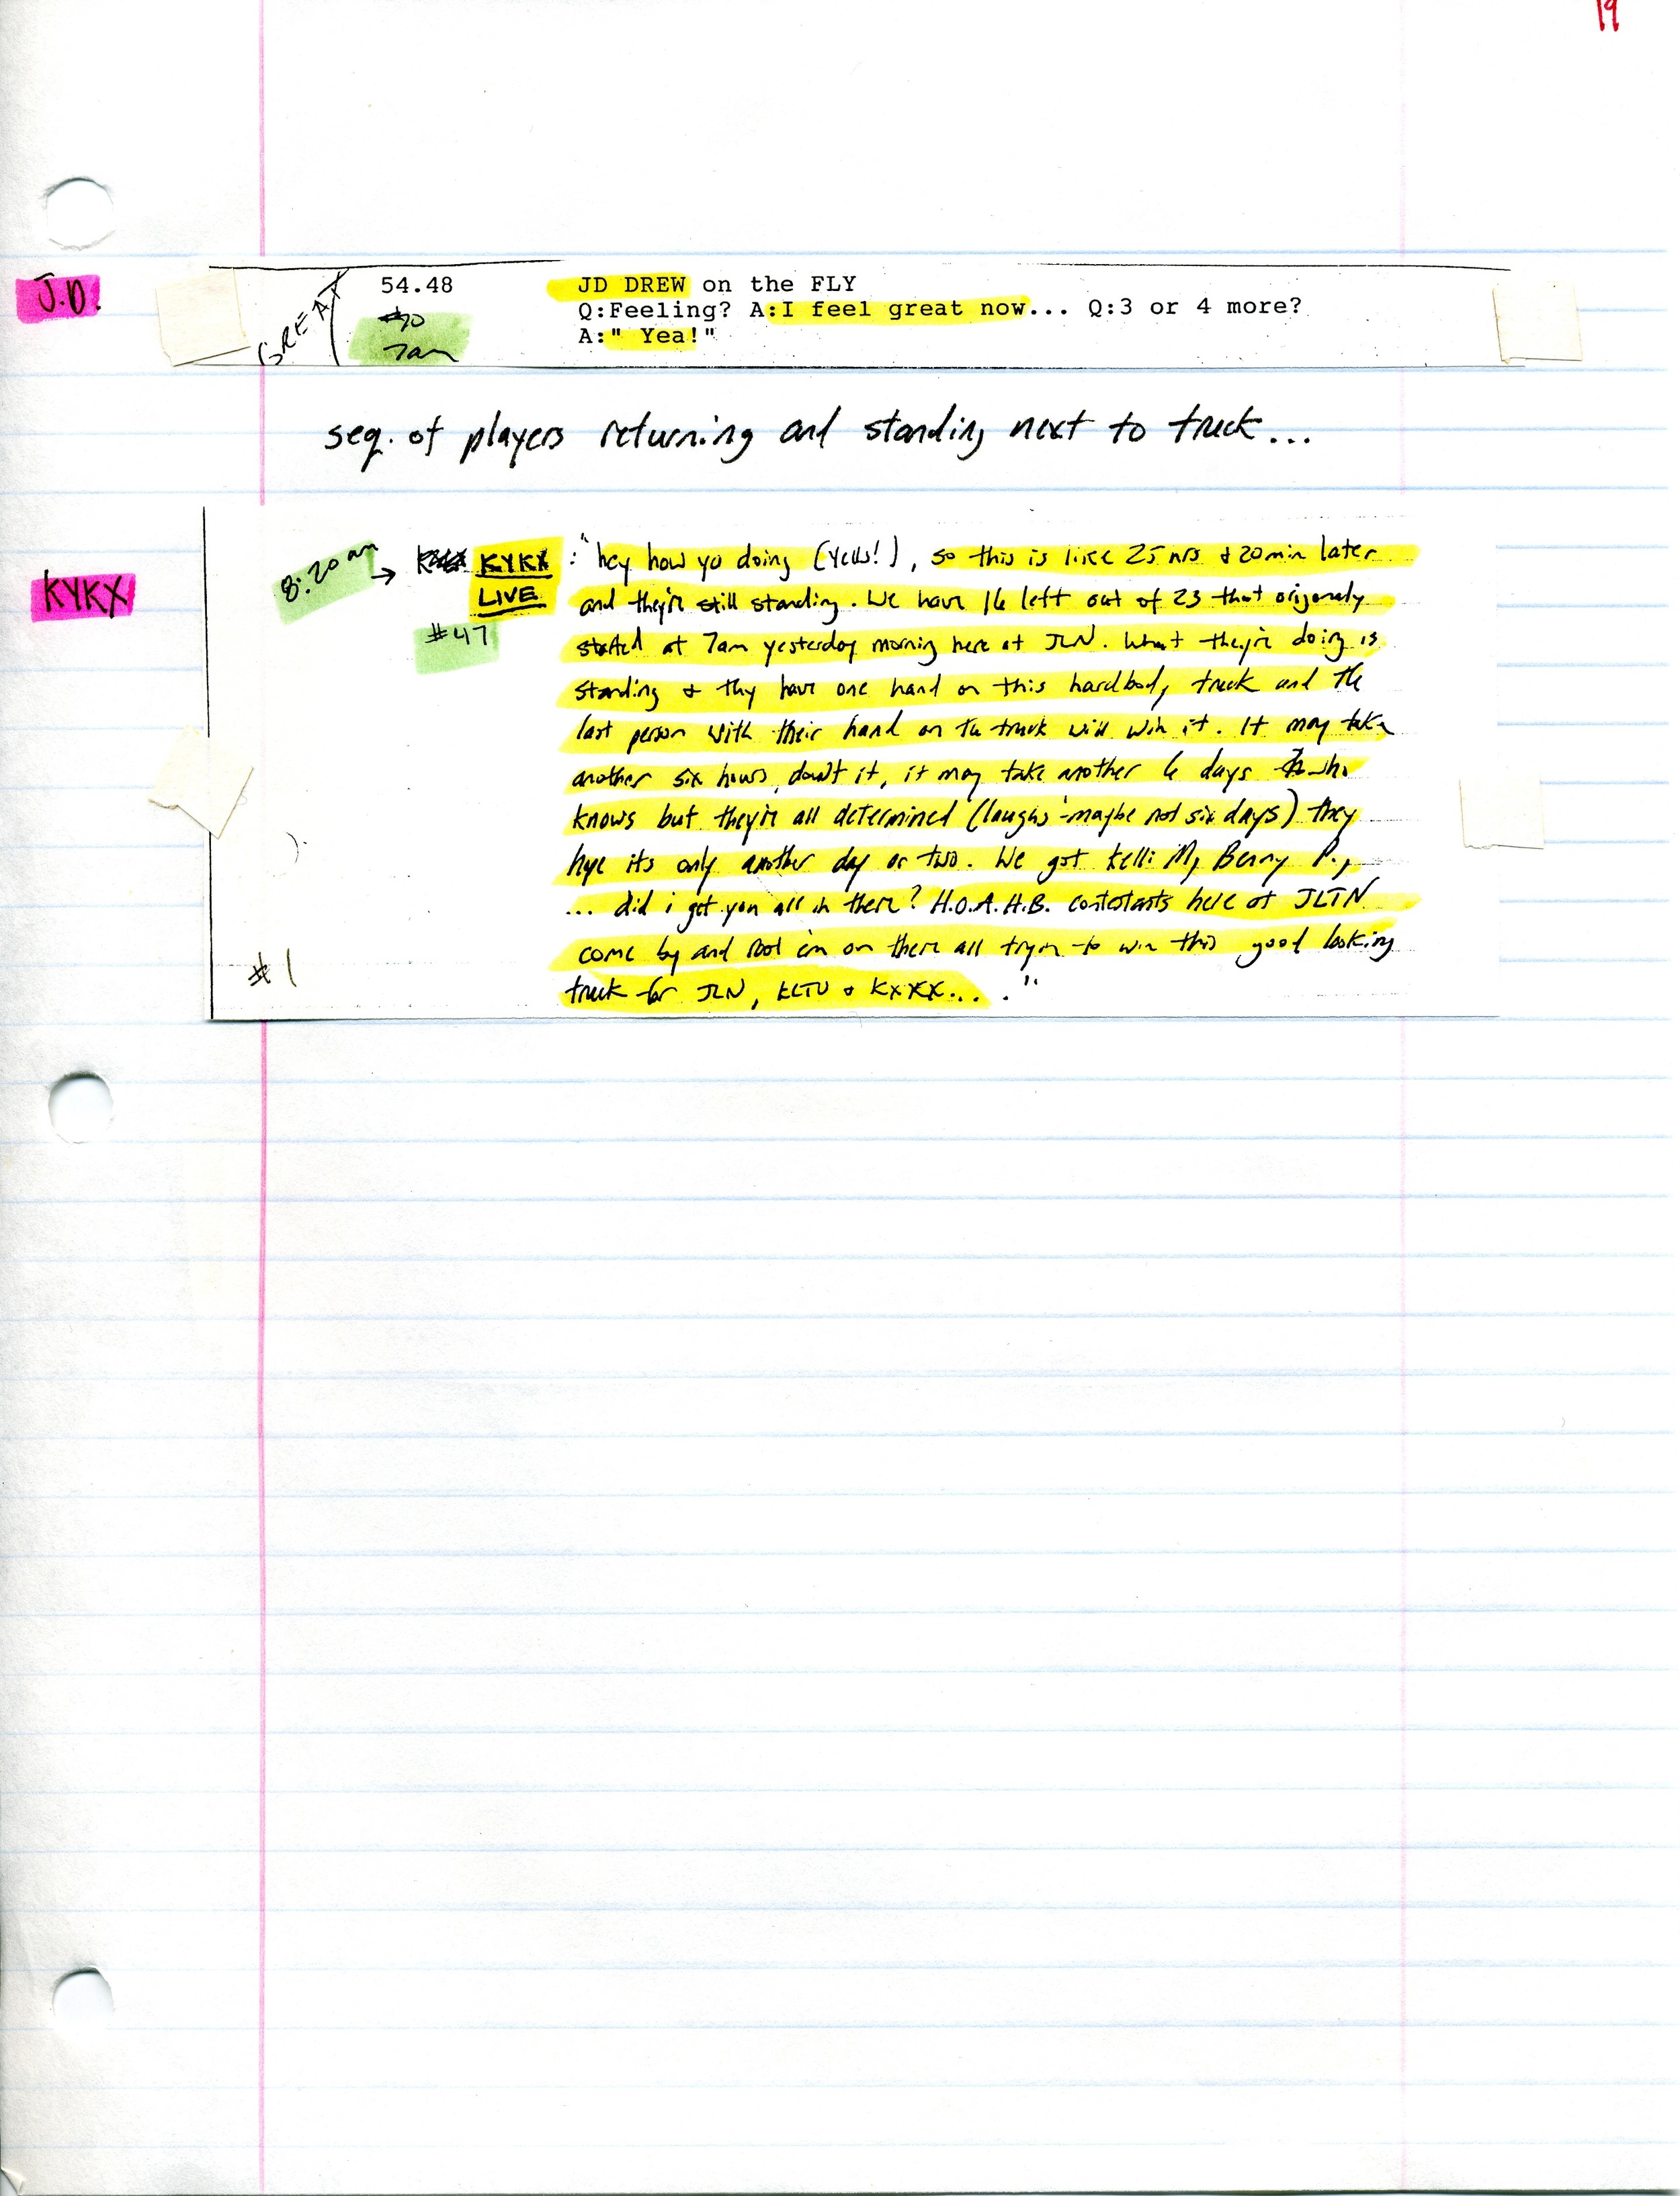 19
J.D.
GREAT
54.48
JD DREW on the FLY
#70
Q:Feeling? A:I feel great now... Q:3 or 4 more?
7am
A:" Yea!"
seq. of players returning and standing next to truck...
KYKX
8:20am →
KYKX
LIVE
#47
: "hey how yo doing (Yells!), so this is like 25 hrs + 20 min later
and they're still standing. We have 16 left out of 23 that origonely
started at 7am yesterday morning here at JLN. What they're doing is
standing + thy have one hand on this hardbody truck and the
last person with their hand on the truck will win it. It may take
another six hours, doubt it, it may take another 6 days who
knows but they're all determined (laughs-maybe not six days) they
hope its only another day or two. We got Kelli M, Benny P.,
... did i get you all in there? H.O.A.H.B. contestants here at JLTN
come by and root em on there all tryin to win this good looking
truck for JLN, KLTV + KXKX... ."
#1